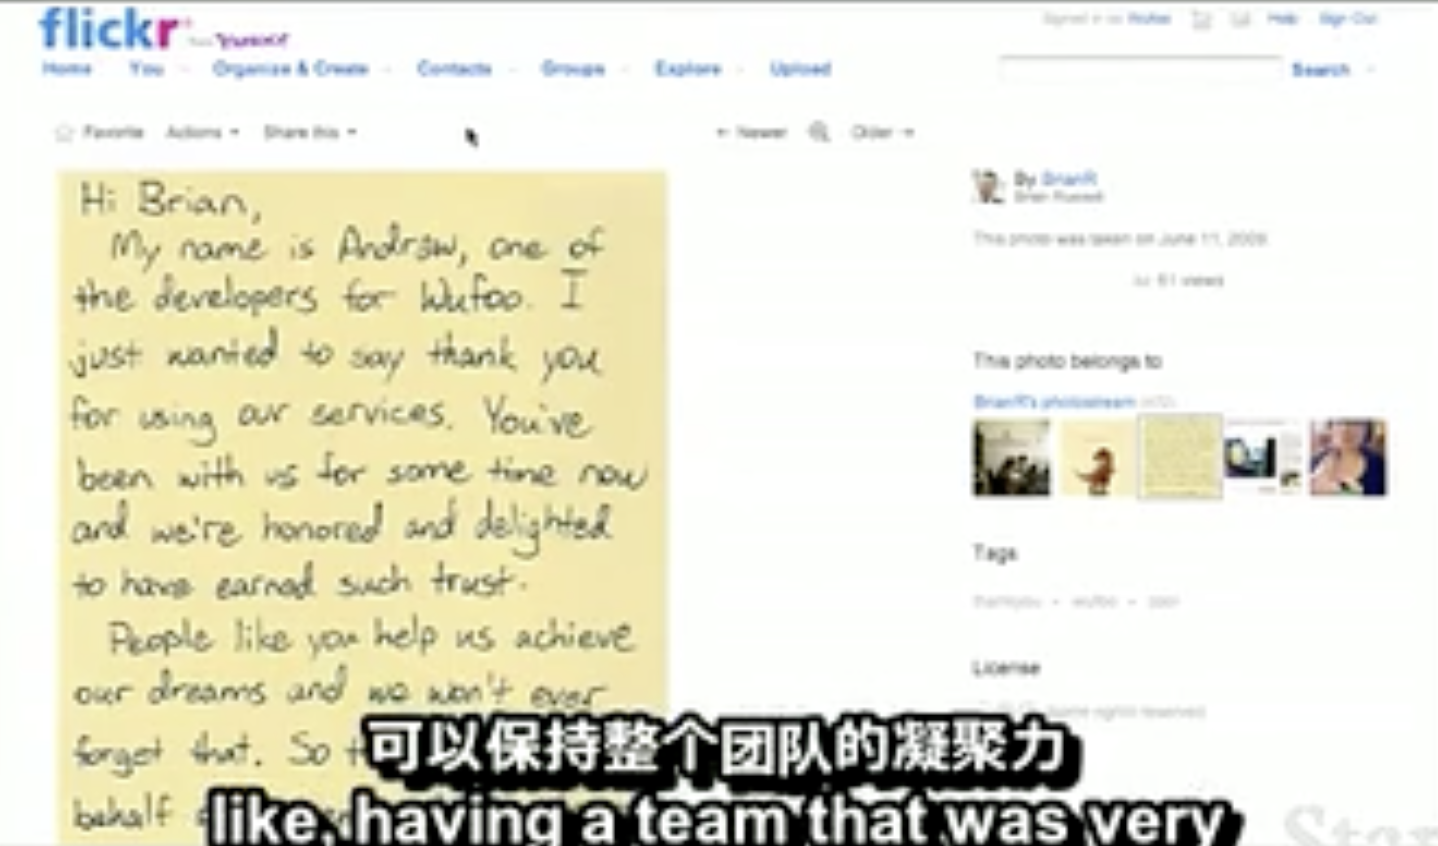 flickr YAHOO!
Signed in as Wufoo Help Sign Out
Home You Organize & Create Contacts Groups Explore Upload
Search
Favorite Actions Share this
← Newer Older →
Hi Brian,
My name is Andrew, one of
the developers for Wufoo. I
just wanted to say thank you
for using our services. You've
been with us for some time now
and we're honored and delighted
to have earned such trust.
People like you help us achieve
our dreams and we won't ever
forget that. So
behalf
By BrianR
This photo was taken on June 11, 2009.
61 views
This photo belongs to
BrianR's photostream
Tags
thankyou • wufoo •
License
Some rights reserved
可以保持整个团队的凝聚力
like, having a team that was very